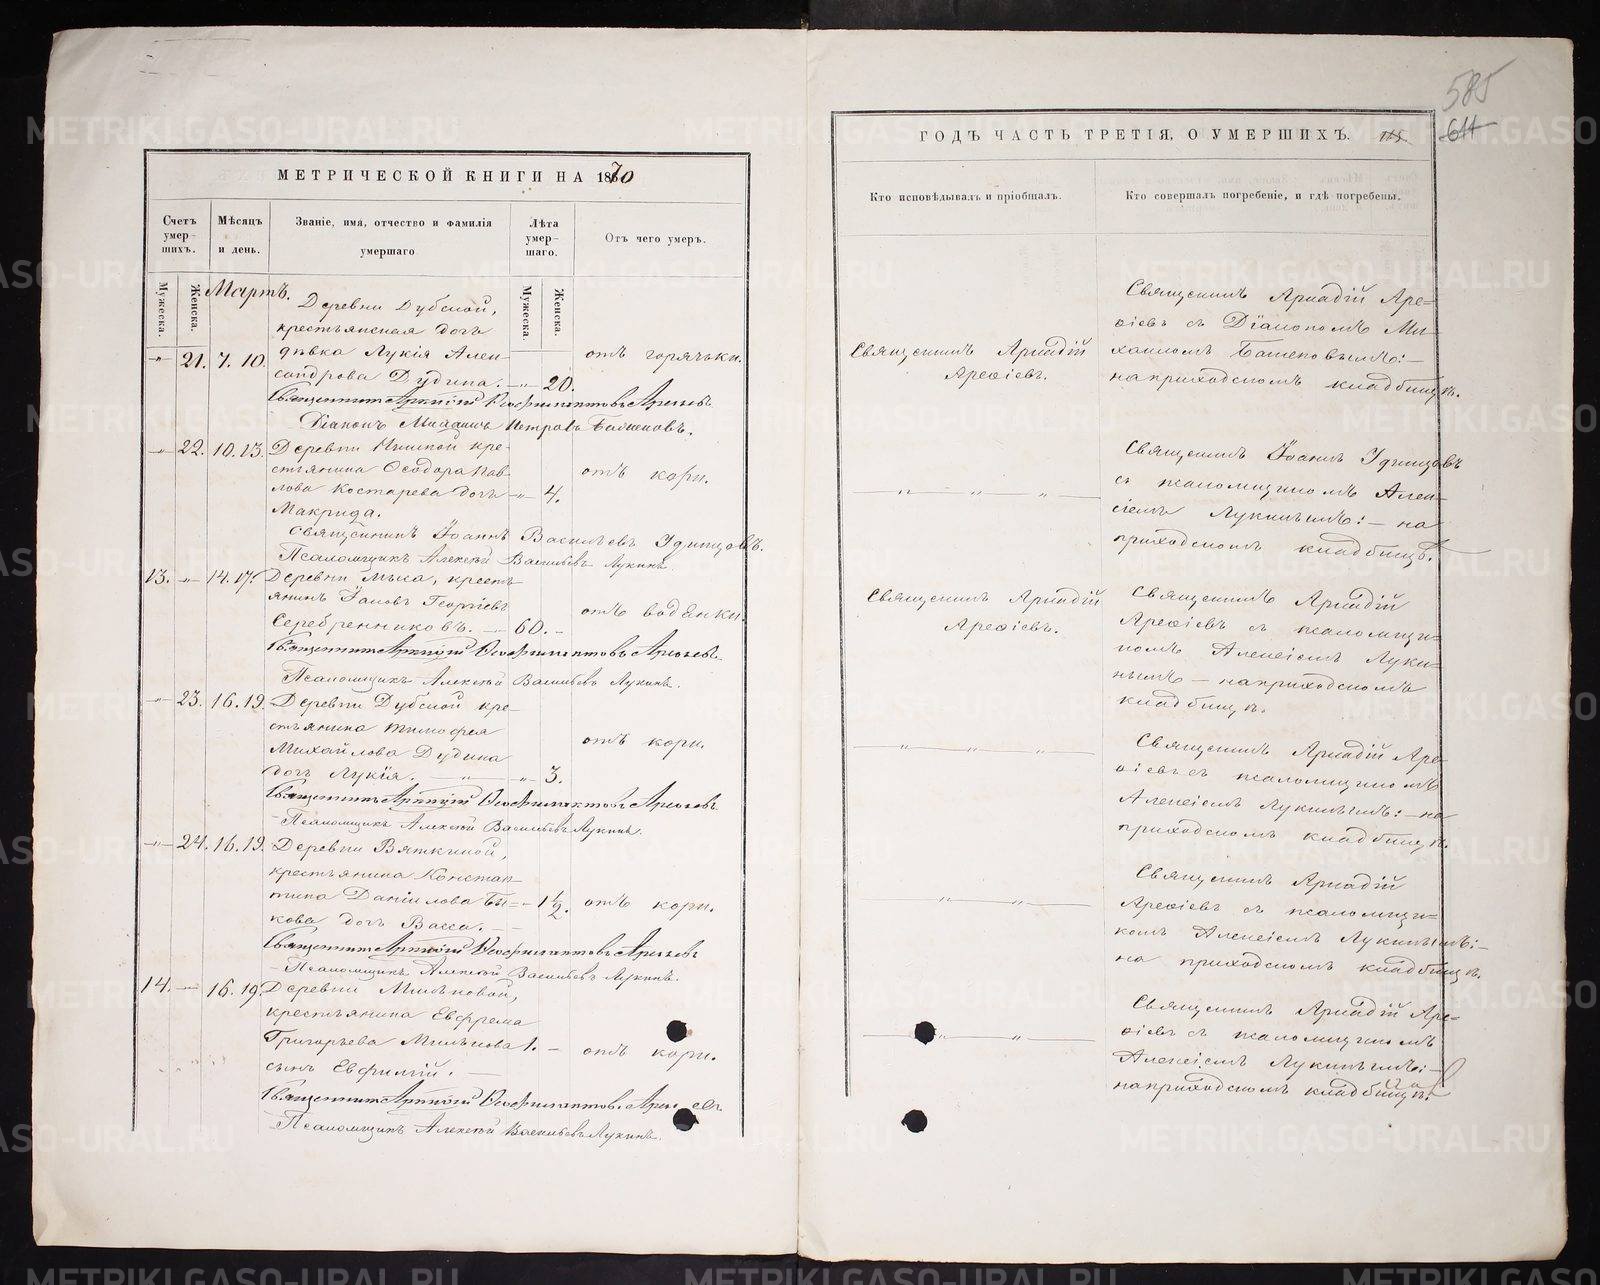 МЕТРИЧЕСКОЙ КНИГИ НА 1870
Счетъ умерших.
Мѣсяцъ и день.
Званіе, имя, отчество и фамилія умершаго
Лѣта умершаго.
Отъ чего умеръ.
Мужеска.
Женска.
Мужеска.
Женска.
Мартъ.
Деревни Дубской,
крестьянская дочь
21. 7. 10. дѣвка Лукія Алек-
сандрова Дудина. — „ — 20.
отъ горячки.
Священникъ Аркадій Ѳеофилактовъ Арефьевъ
Діаконъ Михаилъ Петровъ Башеновъ.
„ 22. 10. 13. Деревни кре-
стьянина Ѳеодора Пав-
лова Костарева дочь — „ — 4.
Макрида.
отъ кори.
Священникъ Іоаннъ Васильевъ Удинцовъ.
Псаломщикъ Алексѣй Васильевъ Лукинъ.
13. „ 14. 17. Деревни Мыса, кресть-
янинъ Іаковъ Георгіевъ
Серебренниковъ. — 60. —
отъ водянки.
Священникъ Аркадій Ѳеофилактовъ Арефьевъ
Псаломщикъ Алексѣй Васильевъ Лукинъ.
„ 23. 16. 19. Деревни Дубской кре-
стьянина Тимофея
Михайлова Дудина
дочь Лукія. — „ — „ — 3.
отъ кори.
Священникъ Аркадій Ѳеофилактовъ Арефьевъ
Псаломщикъ Алексѣй Васильевъ Лукинъ.
„ 24. 16. 19. Деревни Вяткиной,
крестьянина Констан-
тина Даніилова Бы-
кова дочь Васса.
1 1/2. отъ кори.
Священникъ Аркадій Ѳеофилактовъ Арефьевъ
Псаломщикъ Алексѣй Васильевъ Лукинъ.
14. — 16. 19. Деревни Мильковой,
крестьянина Евфрема
Григорьева Милькова 1. — отъ кори.
сынъ Евфимій. —
Священникъ Аркадій Ѳеофилактовъ Арефьевъ
Псаломщикъ Алексѣй Васильевъ Лукинъ.
585
611
ГОДЪ ЧАСТЬ ТРЕТІЯ, О УМЕРШИХЪ.
Кто исповѣдывалъ и пріобщалъ.
Кто совершалъ погребеніе, и гдѣ погребены.
Священникъ Аркадій
Арефіевъ.
Священникъ Аркадій Аре-
фіевъ съ Діакономъ Ми-
хаиломъ Башеновымъ: —
на приходскомъ кладбищѣ.
— „ — „ — „ —
Священникъ Іоаннъ Удинцовъ
съ псаломщикомъ Алек-
сіемъ Лукинымъ: — на
приходскомъ кладбищѣ.
Священникъ Аркадій
Арефіевъ.
Священникъ Аркадій
Арефіевъ съ псаломщи-
комъ Алексіемъ Луки-
нымъ — на приходскомъ
кладбищѣ.
— „ — „ — „ —
Священникъ Аркадій Аре-
фіевъ съ псаломщикомъ
Алексіемъ Лукинымъ: — на
приходскомъ кладбищѣ.
— „ — „ —
Священникъ Аркадій
Арефіевъ съ псаломщи-
комъ Алексіемъ Лукинымъ: —
на приходскомъ кладбищѣ.
— „ — „ —
Священникъ Аркадій Аре-
фіевъ съ псаломщикомъ
Алексіемъ Лукинымъ: —
на приходскомъ кладбищѣ.
METRIKI.GASO-URAL.RU